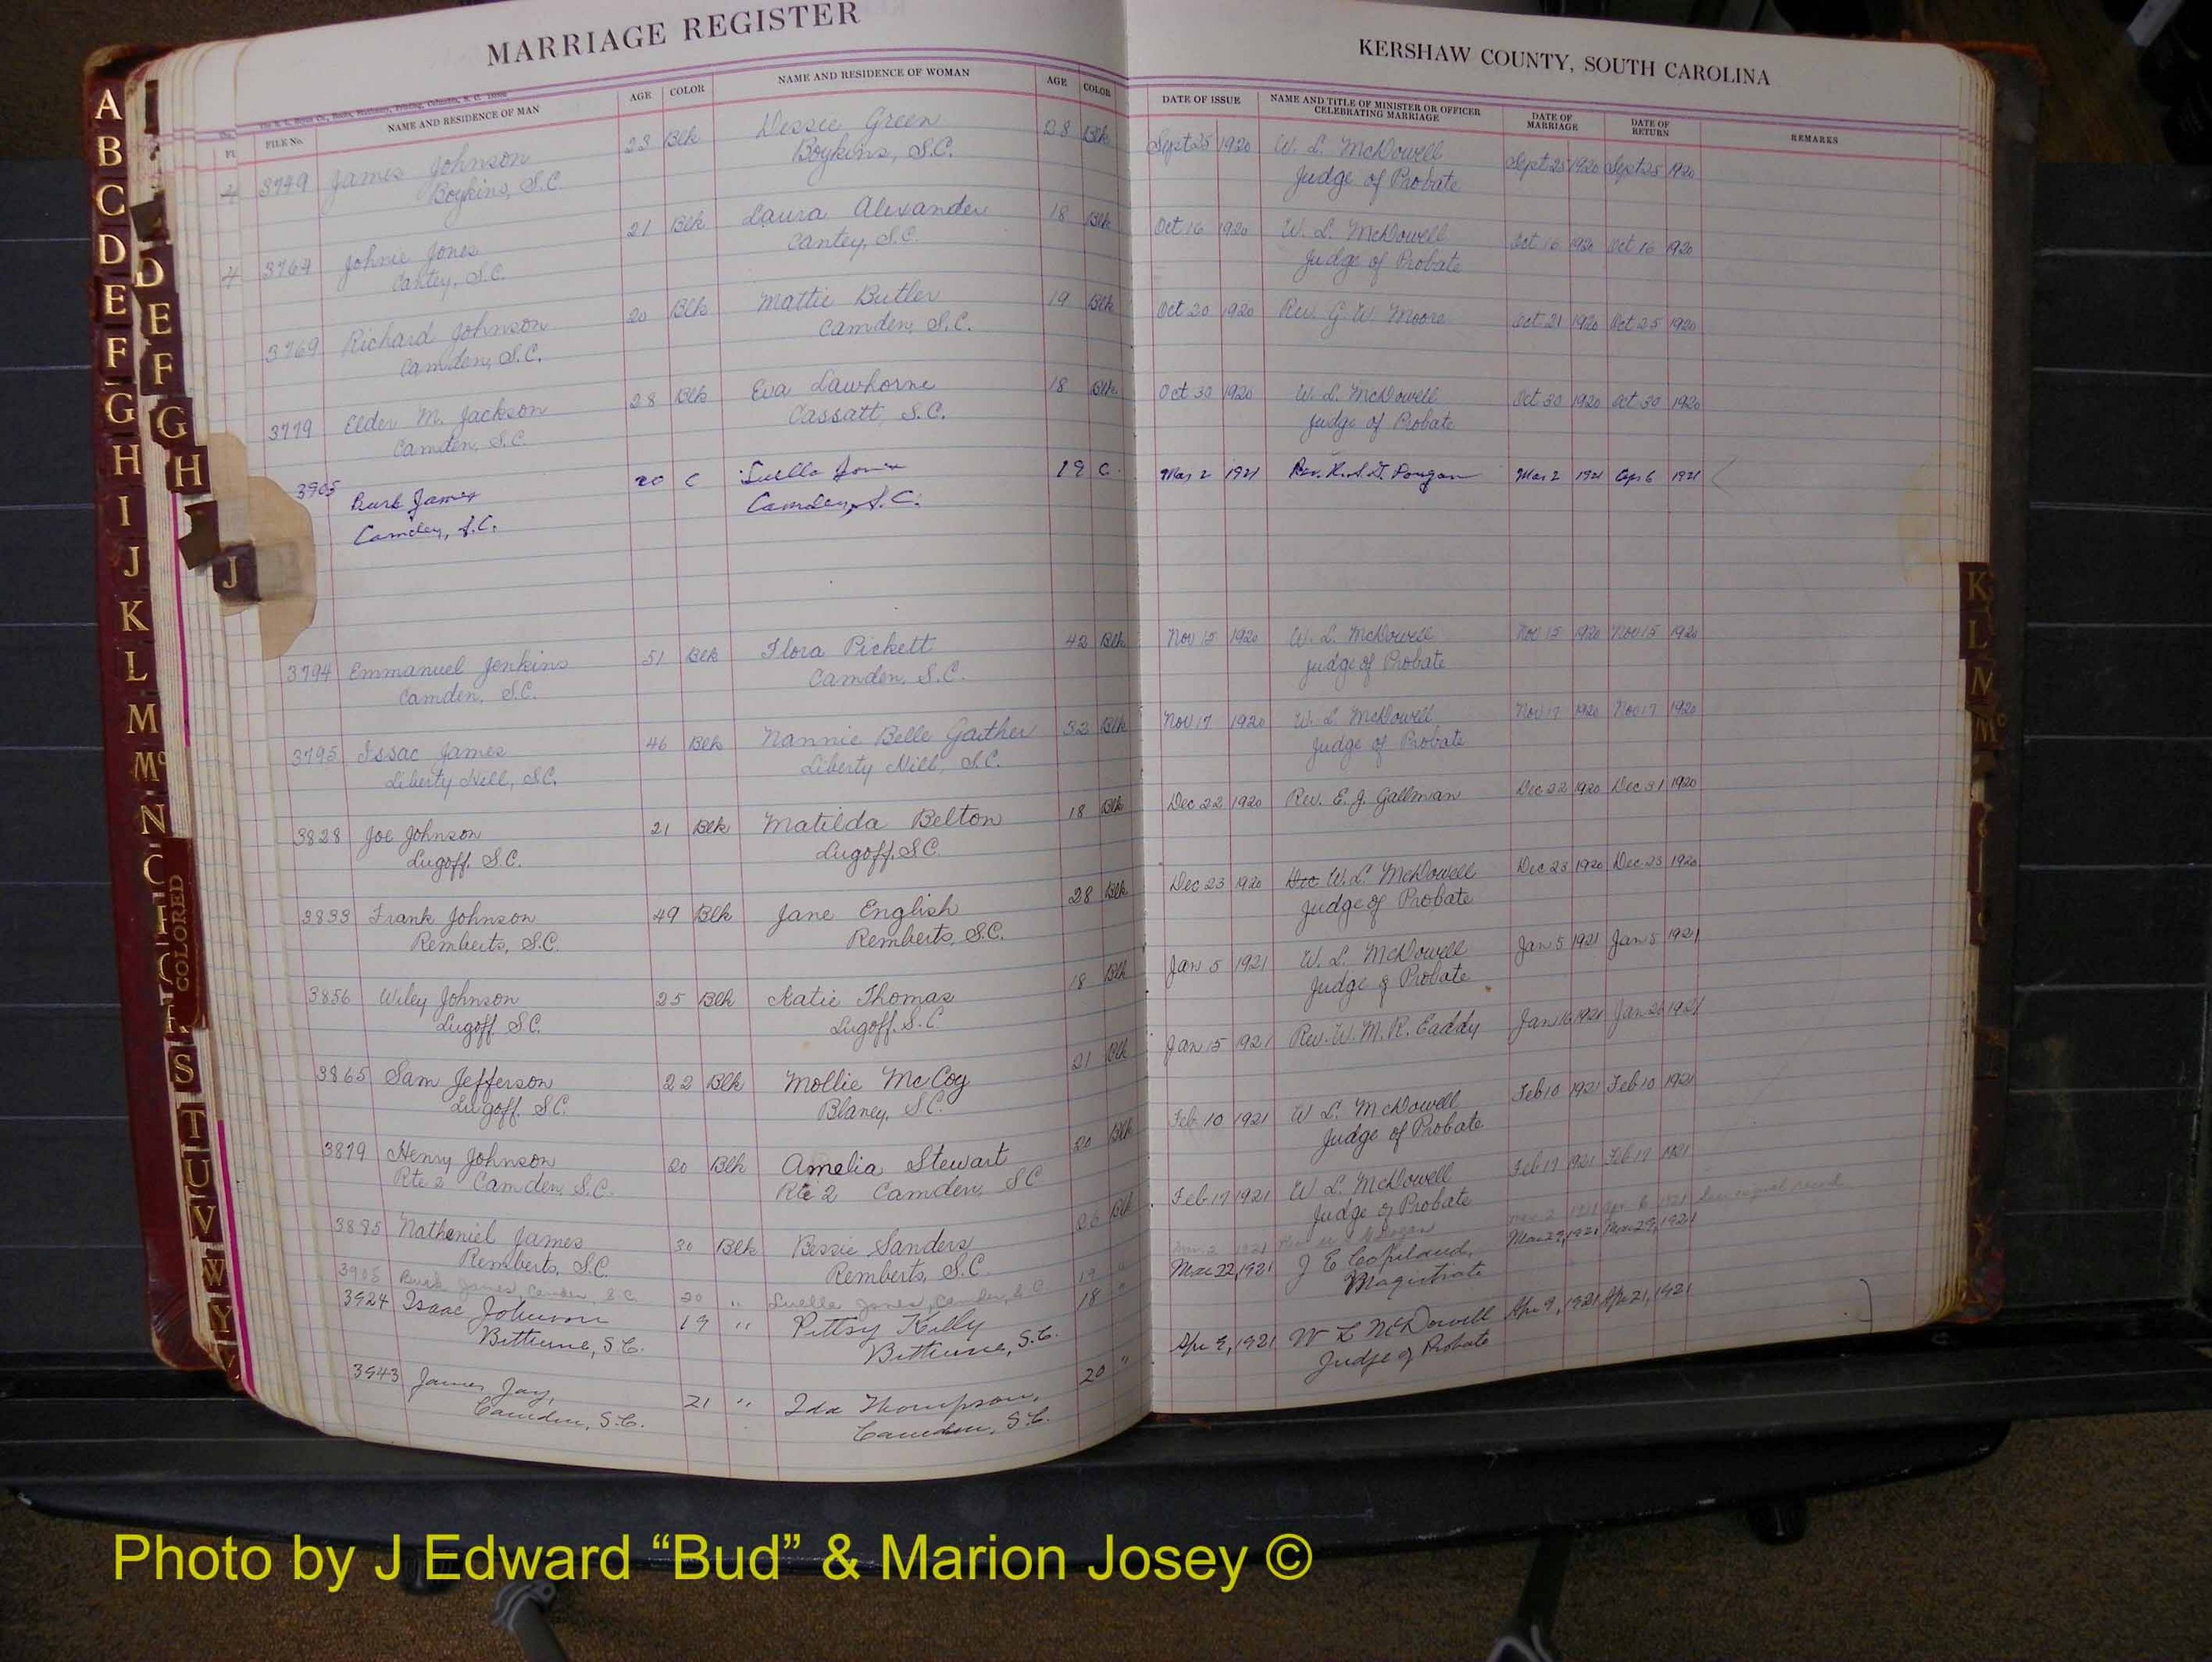 MARRIAGE REGISTER
KERSHAW COUNTY, SOUTH CAROLINA
FILE No. NAME AND RESIDENCE OF MAN AGE COLOR NAME AND RESIDENCE OF WOMAN AGE COLOR DATE OF ISSUE NAME AND TITLE OF MINISTER OR OFFICER CELEBRATING MARRIAGE DATE OF MARRIAGE DATE OF RETURN REMARKS
3749 James Johnson 23 Blk Dessie Green Blk Sept 25 1920 W. L. McDowell Sept 25 1920 Sept 25 1920
Boykins, S.C. Boykins, S.C. Judge of Probate
3764 Johnie Jones 21 Blk Laura Alexander 18 Blk Oct 16 1920 W. L. McDowell Oct 16 1920 Oct 16 1920
Cantey, S.C. Cantey, S.C. Judge of Probate
3769 Richard Johnson 20 Blk Mattie Butler 19 Blk Oct 20 1920 Rev. G. W. Moore Oct 21 1920 Oct 25 1920
Camden, S.C. Camden, S.C.
3779 Elder M. Jackson 28 Blk Eva Lawhorne 18 Blk Oct 30 1920 W. L. McDowell Oct 30 1920 Oct 30 1920
Camden, S.C. Cassatt, S.C. Judge of Probate
3905 Burk James 20 C Luella Jones 19 C. Mar 2 1921 Rev. Mar 2 1921 Apr 6 1921
Camden, S.C. Camden, S.C.
3794 Emmanuel Jenkins 51 Blk Flora Pickett 42 Blk Nov 15 1920 W. L. McDowell Nov 15 1920 Nov 15 1920
Camden, S.C. Camden, S.C. Judge of Probate
3795 Issac James 46 Blk Nannie Belle Gaither Blk Nov 17 1920 W. L. McDowell Nov 17 1920 Nov 17 1920
Liberty Hill, S.C. Liberty Hill, S.C. Judge of Probate
3828 Joe Johnson 21 Blk Matilda Belton 18 Blk Dec 22 1920 Rev. E. J. Gallman Dec 22 1920 Dec 31 1920
Lugoff, S.C. Lugoff, S.C.
3833 Frank Johnson 49 Blk Jane English 28 Blk Dec 23 1920 Dec W. L. McDowell Dec 23 1920 Dec 23 1920
Remberts, S.C. Remberts, S.C. Judge of Probate
3856 Wiley Johnson 25 Blk Katie Thomas 18 Blk Jan 5 1921 W. L. McDowell Jan 5 1921 Jan 5 1921
Lugoff, S.C. Lugoff, S.C. Judge of Probate
3865 Sam Jefferson 22 Blk Mollie McCoy 21 Blk Jan 15 1921 Rev. W. M. R. Eaddy Jan 16 1921 Jan 26 1921
Lugoff, S.C. Blaney, S.C.
3879 Henry Johnson 20 Blk Amelia Stewart 20 Blk Feb 10 1921 W. L. McDowell Feb 10 1921 Feb 10 1921
Rte 2 Camden, S.C. Rte 2 Camden, S.C. Judge of Probate
3885 Nathaniel James 30 Blk Bessie Sanders 26 Blk Feb 17 1921 W. L. McDowell Feb 17 1921 Feb 17 1921
Remberts, S.C. Remberts, S.C. Judge of Probate
3905 Burk James, Camden, S.C. 20 " Luella Jones, Camden, S.C. 19 " Mar. 2 1921 Mar 2 1921 Apr 6 1921
3924 Isaac Johnson 19 " Pittsy Kelly 18 " Mar 22, 1921 J E Copeland, Mar 27, 1921 Mar 29, 1921
Bethune, S.C. Bethune, S.C. Magistrate
3943 James Jay, 21 " Ida Thompson, 20 " Apr 9, 1921 W L McDowell Apr 9, 1921 Apr 21, 1921
Camden, S.C. Camden, S.C. Judge of Probate
A
B
C
D
E
F
G
H
I
J
K
L
M
Mc
N
COLORED
S
T
U
V
W
Y
D
E
F
G
H
J
K
L
M
Mc
Photo by J Edward “Bud” & Marion Josey ©